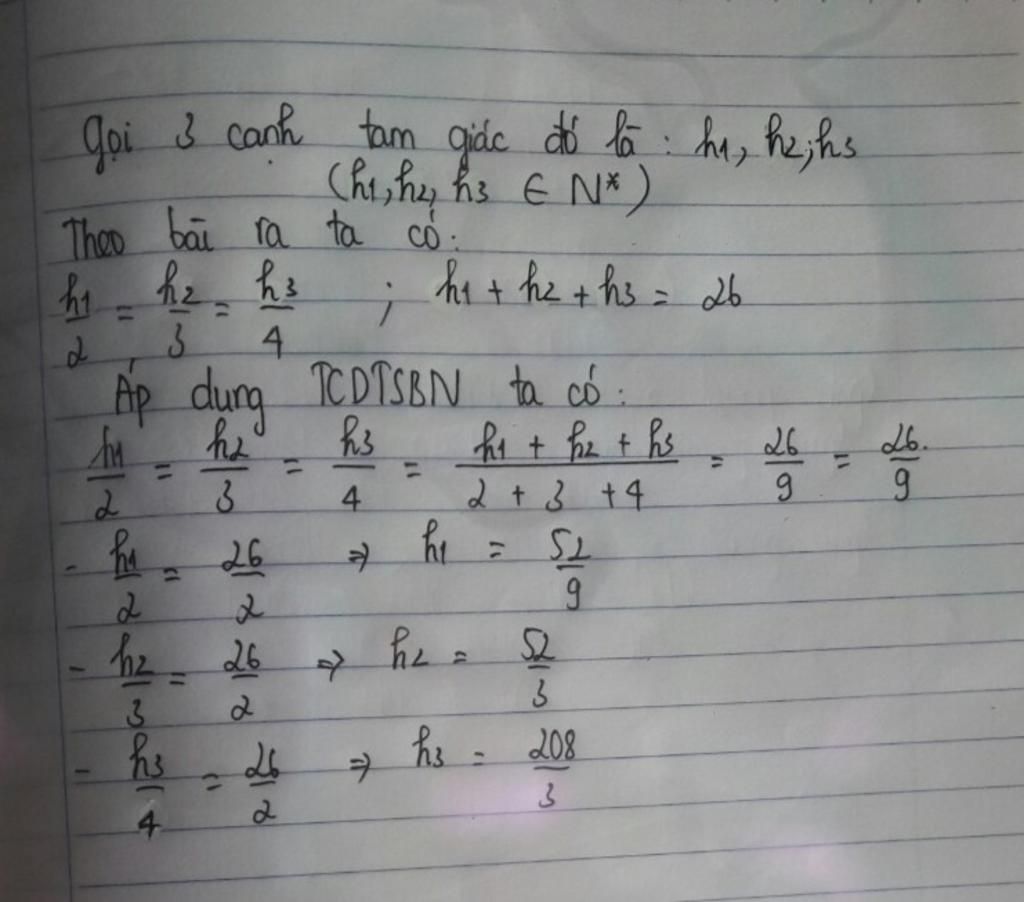 Gọi 3 cạnh tam giác đó là : h1, h2; h3
(h1, h2, h3 ∈ N*)
Theo bài ra ta có:
h1/2 = h2/3 = h3/4 ; h1 + h2 + h3 = 26
Áp dung TCDTSBN ta có :
h1/2 = h2/3 = h3/4 = (h1 + h2 + h3)/(2 + 3 + 4) = 26/9 = 26/9.
- h1/2 = 26/2 => h1 = 52/9
- h2/3 = 26/2 => h2 = 52/3
- h3/4 = 26/2 => h3 = 208/3